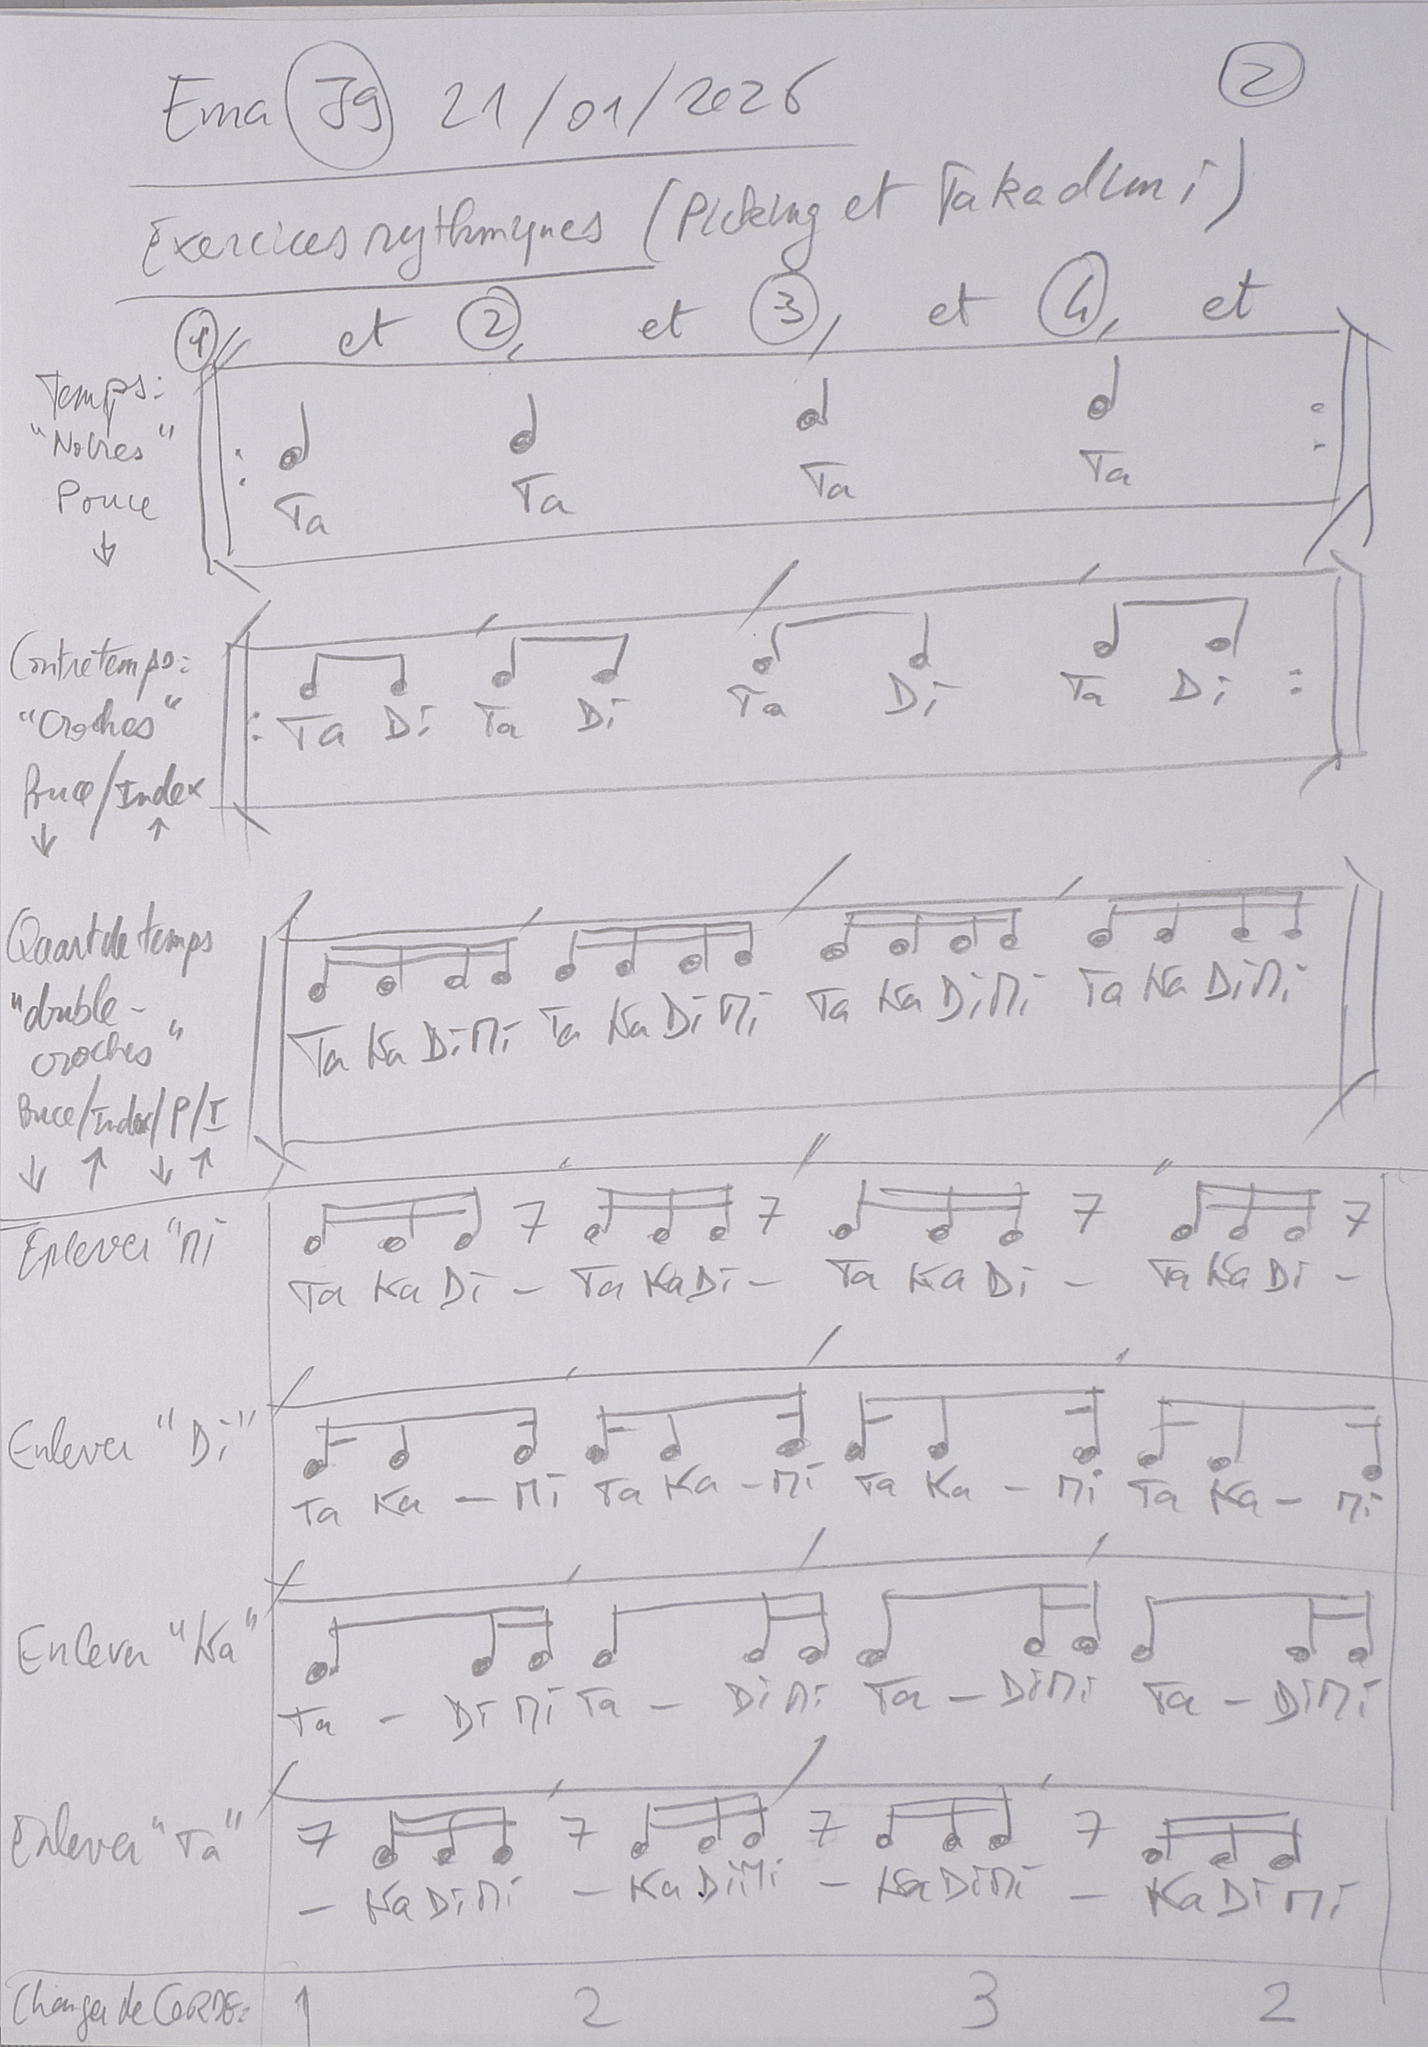 Ema J9 21/01/2026 2
Exercices rythmiques (Picking et Takadimi)
1 et 2 et 3 et 4 et
Temps:
"Noires"
Pouce
↓
Ta Ta Ta Ta
Contretemps:
"Croches"
Pouce/Index
↓ ↑
Ta Di Ta Di Ta Di Ta Di
Quart de temps
"double-
croches"
Pouce/Index/P/I
↓ ↑ ↓ ↑
Ta Ka Di Mi Ta Ka Di Mi Ta Ka Di Mi Ta Ka Di Mi
Enlever "Mi
Ta Ka Di - Ta Ka Di - Ta Ka Di - Ta Ka Di -
Enlever "Di"
Ta Ka - Mi Ta Ka - Mi Ta Ka - Mi Ta Ka - Mi
Enlever "Ka"
Ta - Di Mi Ta - Di Mi Ta - Di Mi Ta - Di Mi
Enlever "Ta"
- Ka Di Mi - Ka Di Mi - Ka Di Mi - Ka Di Mi
Changer de CORDE: 1 2 3 2